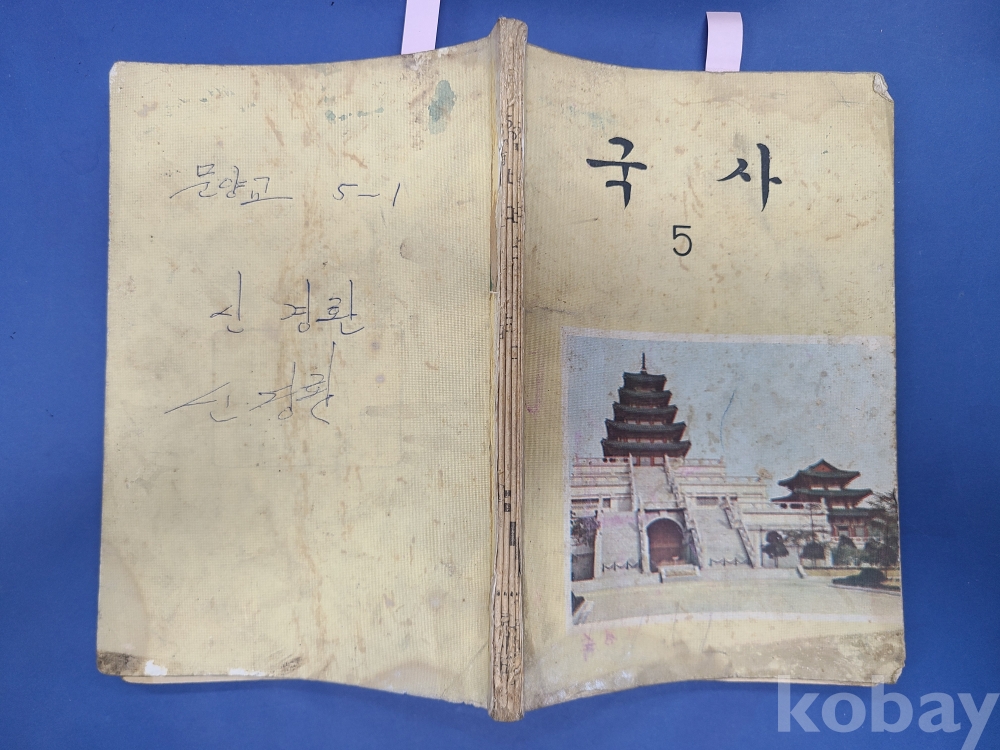 문양교 5-1
신 경환
신경환
국 사
5
kobay